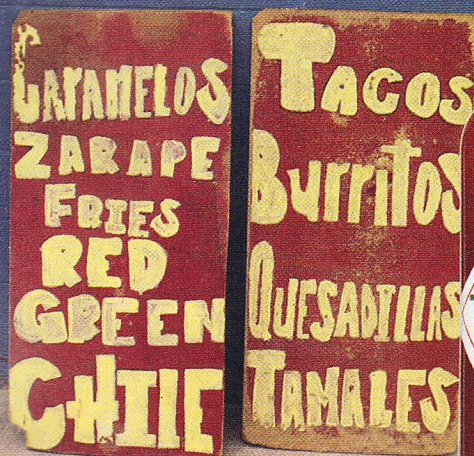 CARAMELOS
ZARAPE
FRIES
RED
GREEN
CHILE
TACOS
Burritos
QUESADILLAS
TAMALES